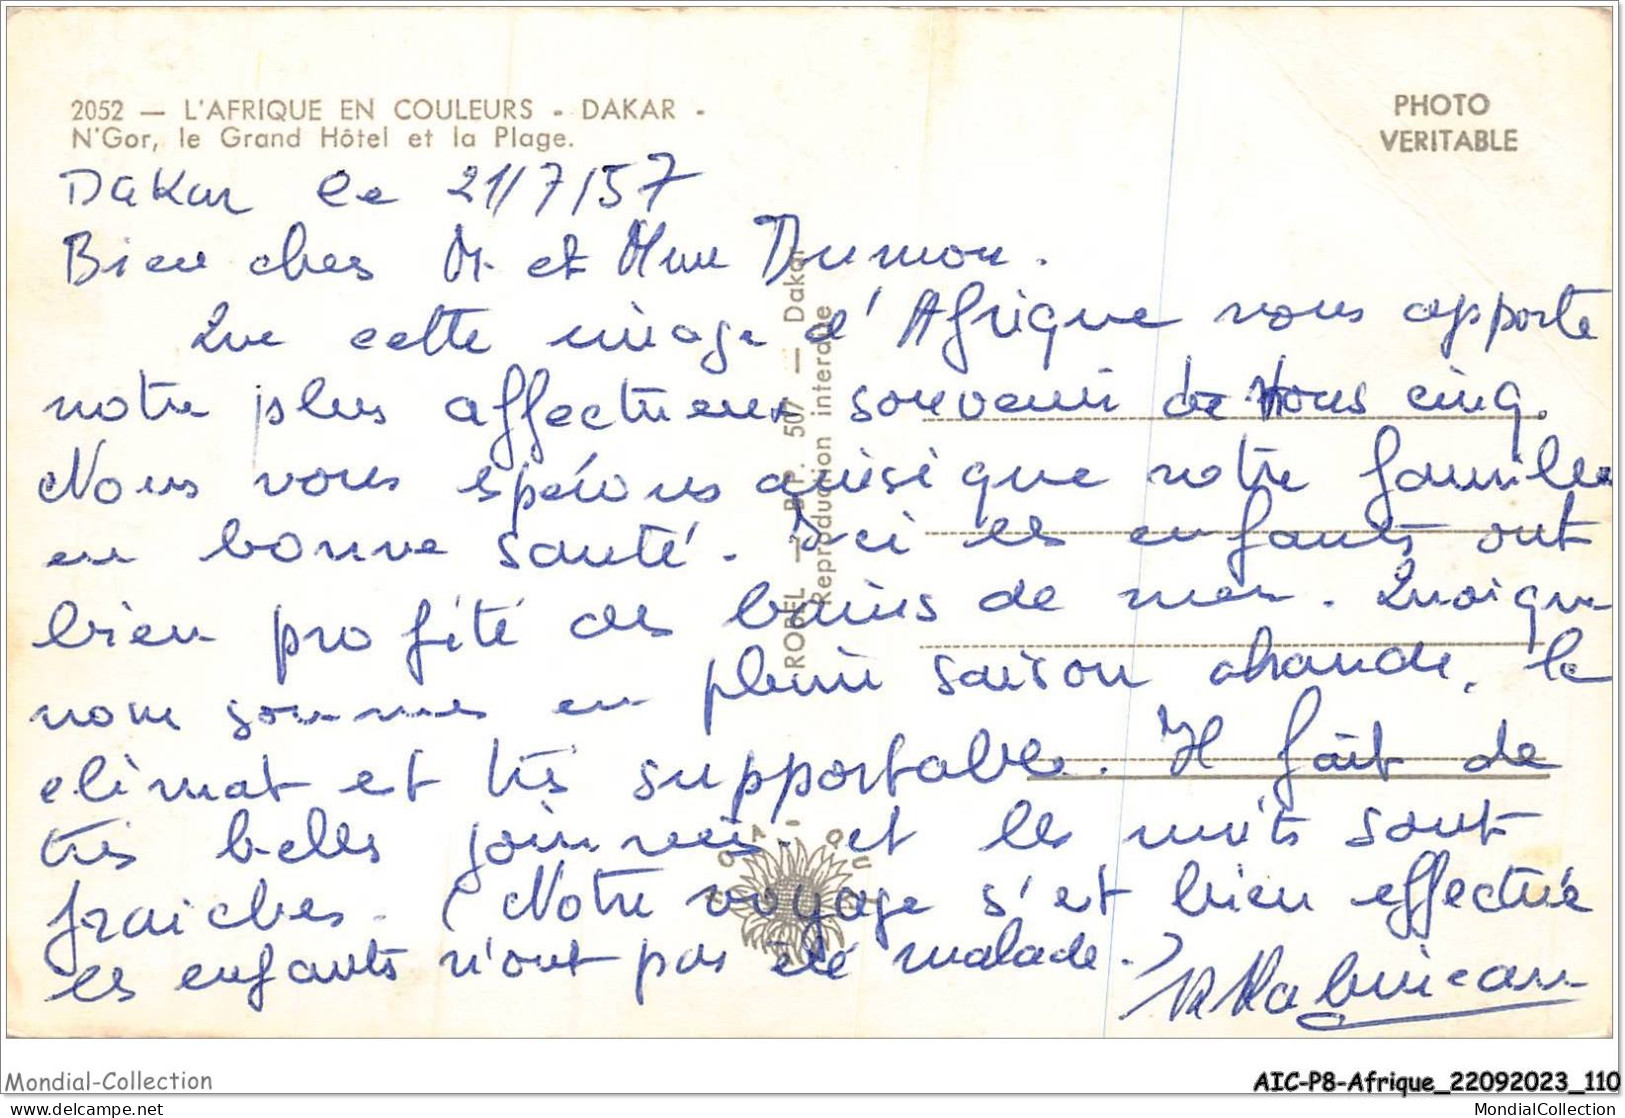 2052 — L'AFRIQUE EN COULEURS - DAKAR -
N'Gor, le Grand Hôtel et la Plage.
PHOTO
VERITABLE
Dakar le 21/7/57
Bien chers M. et Mme Dumon.
Que cette image d'Afrique vous apporte
notre plus affectueux souvenir de Nous cinq.
Nous vous espérons ainsi que votre famille
en bonne santé. Ici les enfants ont
bien profité des bains de mer. Quoique
nous sommes en pleine saison chaude, le
climat et très supportable. Il fait de
très belles journées et les nuits sont
fraiches. (Notre voyage s'est bien effectué
les enfants n'ont pas été malade.)
ROBEL — B.P. 507 — Dakar
Reproduction interdite
Mondial-Collection
AIC-P8-Afrique_22092023_110
https://www.delcampe.net
MondialCollection